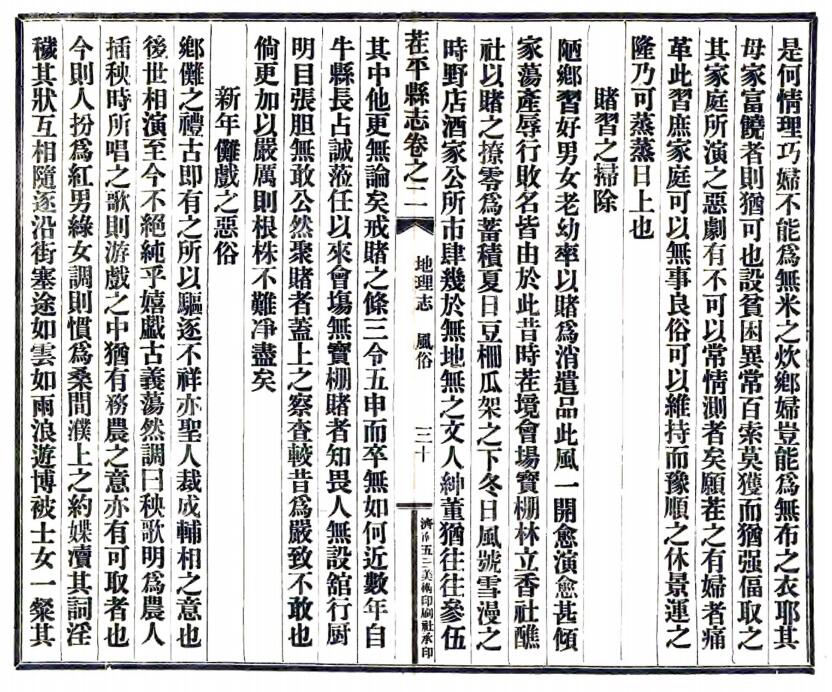 是何情理巧婦不能爲無米之炊鄉婦豈能爲無布之衣耶其
母家富饒者則猶可也設貧困異常百索莫獲而猶强偪取之
其家庭所演之惡劇有不可以常情測者矣願茬之有婦者痛
革此習庶家庭可以無事良俗可以維持而豫順之休景運之
隆乃可蒸蒸日上也
賭習之掃除
陋鄉習好男女老幼率以賭爲消遣品此風一開愈演愈甚傾
家蕩產辱行敗名皆由於此昔時茬境會場寶棚林立香社醮
社以賭之撩零爲蓄積夏日豆棚瓜架之下冬日風號雪漫之
時野店酒家公所市肆幾於無地無之文人紳董猶往往參伍
茬平縣志卷之二
地理志 風俗
三十
濟南五三美術印刷社承印
其中他更無論矣戒賭之條三令五申而卒無如何近數年自
牛縣長占誠蒞任以來會塲無寶棚賭者知畏人無設舘行厨
明目張胆無敢公然聚賭者蓋上之察查較昔爲嚴致不敢也
倘更加以嚴厲則根株不難净盡矣
新年儺戲之惡俗
鄉儺之禮古即有之所以驅逐不祥亦聖人裁成輔相之意也
後世相演至今不絕純乎嬉戲古義蕩然調曰秧歌明爲農人
插秧時所唱之歌則游戲之中猶有務農之意亦有可取者也
今則人扮爲紅男綠女調則慣爲桑間濮上之約媟瀆其詞淫
穢其狀互相隨逐沿街塞途如雲如雨浪遊博被士女一粲其